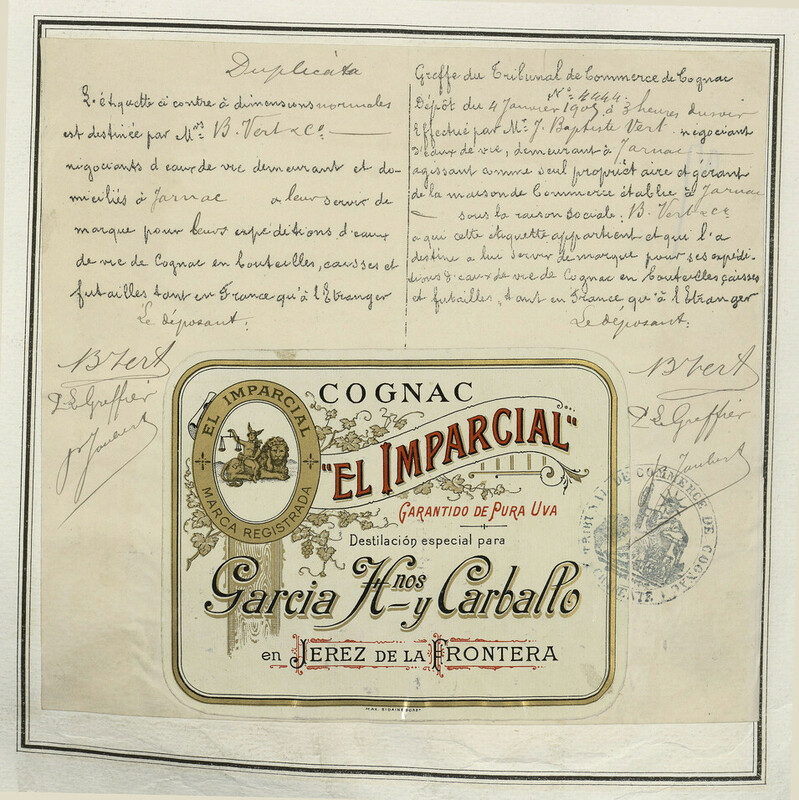 Duplicata
L'étiquette ci contre à dimensions normales
est destinée par Mrs B. Vert & Co
négociants d'eaux de vie demeurant et do-
miciliés à Jarnac a leur servir de
marque pour leurs expéditions d'eaux
de vie de Cognac en bouteilles, caisses et
futailles tant en France qu'à l'Etranger
Le déposant:
B Vert
Le Greffier
Joubert
Greffe du Tribunal de Commerce de Cognac
No 4444.
Dépôt du 4 Janvier 1905 à 3 heures du soir
Effectué par Mr J. Baptiste Vert négociant
d'eaux de vie, demeurant à Jarnac
agissant comme seul propriétaire et gérant
de la maison de Commerce établie à Jarnac
sous la raison sociale: B. Vert & Co
a qui cette étiquette appartient et qui l'a
destine a lui servir de marque pour ses expédi-
tions d'eaux de vie de Cognac en bouteilles caisses
et futailles, tant en France qu'à l'Etranger
Le déposant:
B Vert
Le Greffier
Joubert
COGNAC
"EL IMPARCIAL"
EL IMPARCIAL
MARCA REGISTRADA
GARANTIDO DE PURA UVA
Destilación especial para
Garcia Hnos y Carballo
en JEREZ DE LA FRONTERA
TRIBUNAL DE COMMERCE DE COGNAC
CHARENTE